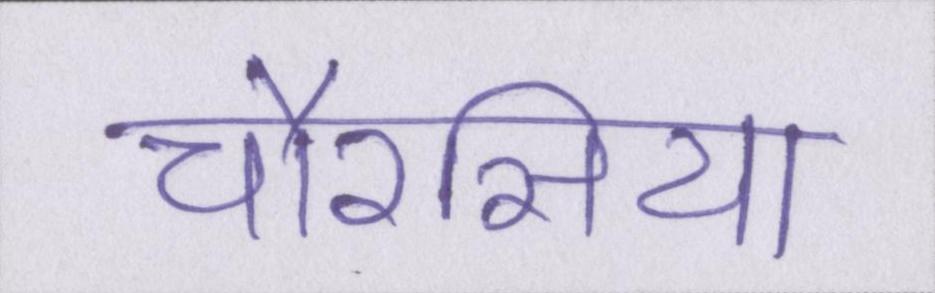 चौरसिया